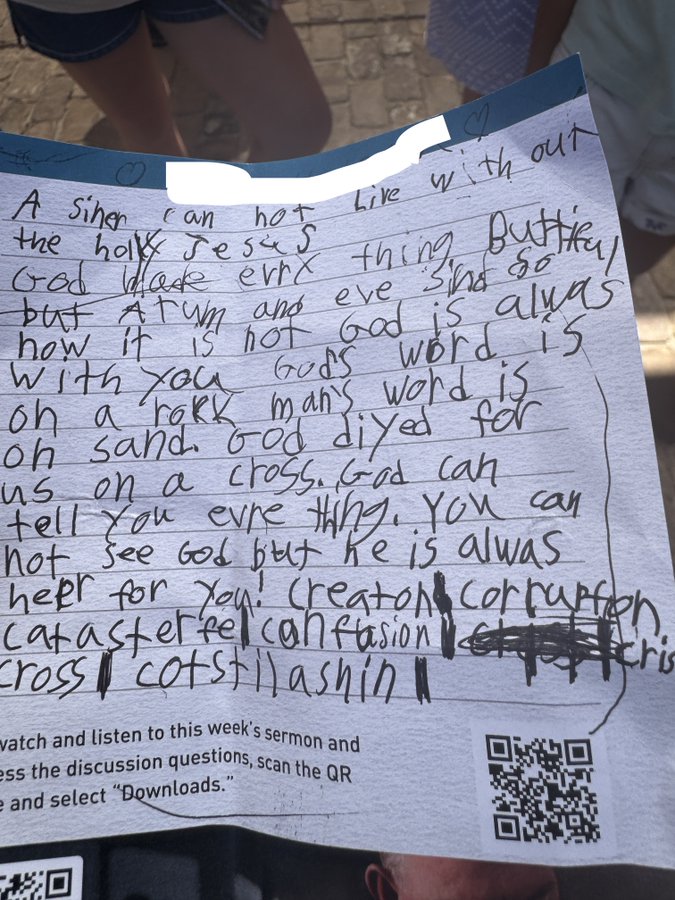 A siner can not Live with out
the holy Jesus
God Made errx thing Buttiful
but Atum and eve sind so
now it is not God is alwas
with you God's word is
on a rokk man's word is
on sand. God diyed for
us on a cross. God can
tell you evre thing. You can
not see God but he is alwas
heer for you! Creaton corruption
catasterfe confusion cris
cross cotstilashin
watch and listen to this week's sermon and
ess the discussion questions, scan the QR
e and select “Downloads.”